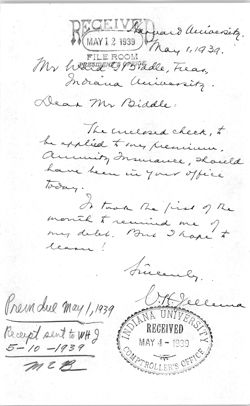 RECEIVED
MAY 12 1939
FILE ROOM
PRESIDENT'S OFFICE
Harvard University.
May 1, 1939.
Mr Ward G Biddle, Treas,
Indiana University.
Dear Mr Biddle:
The enclosed check, to
be applied to my premium,
Annuity Insurance, should
have been in your office
today.
It took the first of the
month to remind me of
my debt. But I hope to
learn!
Sincerely,
Prem due May 1, 1939
Receipt sent to WHJ
5-10-1939
INDIANA UNIVERSITY
RECEIVED
MAY 4 - 1939
COMPTROLLER'S OFFICE